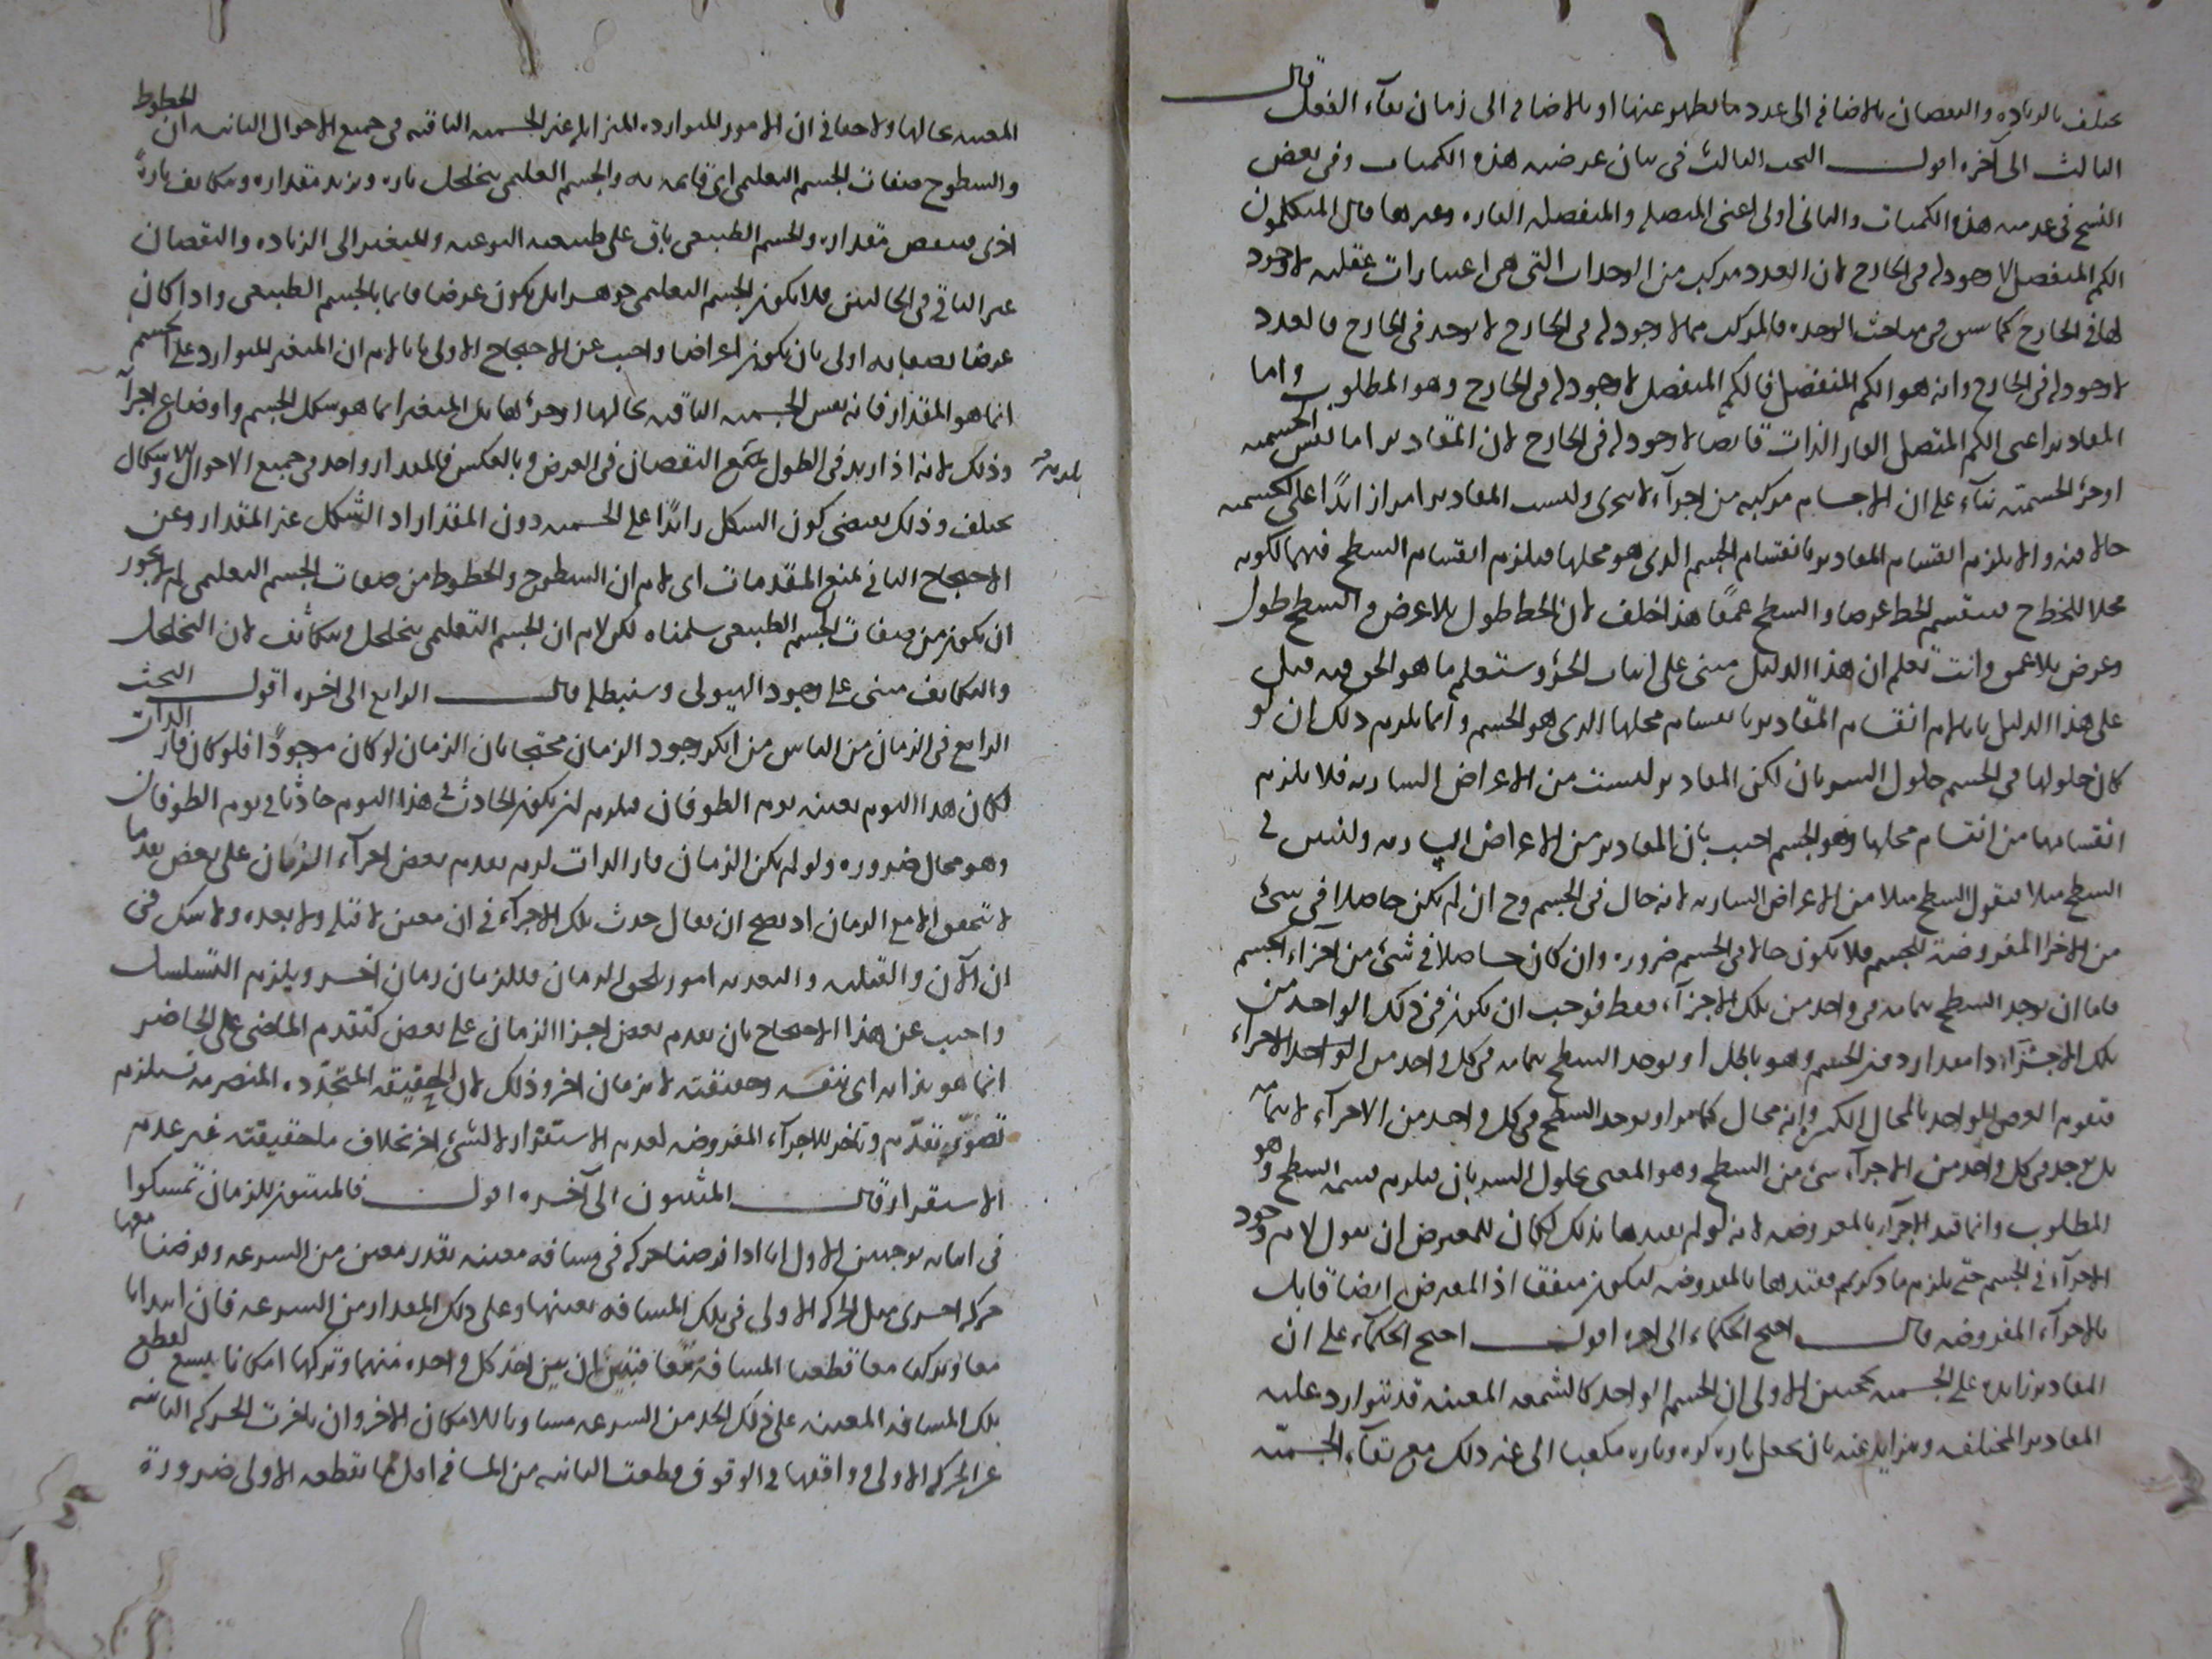 يختلف بالزيادة والنقصان بالاضافة الى عدد ما يظهر عنها او بالاضافة الى زمان بقاء الفعل قال
الثالث الى آخره اقول البحث الثالث في بيان عرضية هذه الكميات وفي بعض
النسخ في عدمية هذه الكميات والثاني اولى اعني المتصلة والمنفصلة القارة وغيرها قال المتكلمون
الكم المنفصل لا وجود له في الخارج لان العدد مركب من الوحدات التي هي اعتبارات عقلية لا وجود
لها في الخارج كما سبق في مباحث الوحدة فالمركب مما لا وجود له في الخارج لا يوجد في الخارج فالعدد
لا وجود له في الخارج وانه هو الكم المنفصل فالكم المنفصل لا وجود له في الخارج وهو المطلوب واما
المقادير اعني الكم المتصل القار الذات فايضا لا وجود له في الخارج لان المقادير اما نفس الجسمية
او جزؤ الجسمية بناء على ان الاجسام مركبة من اجزآء لا تتجزى وليست المقادير امرا زائدا على الجسمية
حالا فيه والا يلزم انقسام المقادير بانقسام الجسم الذي هو محلها فيلزم انقسام السطح فيهما لكونه
محلا للخط ح فينقسم الخط عرضا والسطح عمقا هذا خلف لان الخط طول بلا عرض والسطح طول
وعرض بلا عمق وانت تعلم ان هذا الدليل مبنى على اثبات الجزؤ وستعلم ما هو الحق فيه قيل
على هذا الدليل بانا لا نم انقسام المقادير بانقسام محلها الذي هو الجسم وانما يلزم ذلك ان لو
كان حلولها في الجسم حلول السريان لكن المقادير ليست من الاعراض السارية فلا يلزم
انقسامها من انقسام محلها وهو الجسم اجيب بان المقادير من الاعراض السارية ولنبين في
السطح مثلا فنقول السطح مثلا من الاعراض السارية لانه حال في الجسم وح ان لم يكن حاصلا في شئ
من الاجزا المفروضة للجسم فلا يكون حالا في الجسم ضرورة وان كان حاصلا في شئ من اجزاء الجسم
فاما ان يوجد السطح بتمامه في واحد من تلك الاجزآء فقط فوجب ان يكون في ذلك الواحد من
تلك الاجزآء وهو باطل او يوجد السطح بتمامه في كل واحد من الاجزاء
فيقوم العرض الواحد بالمحال الكثيرة وانه محال كما مر او يوجد السطح في كل واحد من الاجزآء لا بتمامه
بل يوجد في كل واحد من الاجزآء شئ من السطح وهو المعنى بحلول السريان فيلزم قسمة السطح وهو
المطلوب وانما قيد الاجزآء بالمفروضة لانه لو لم يقيدها بذلك لكان للمعترض ان يقول لا نم وجود
الاجزآء في الجسم حتى يلزم ما ذكرتم فقيدها بالمفروضة ليكون متفقا اذ المعترض ايضا قايل
بالاجزآء المفروضة قال احتج الحكماء الى اخره اقول احتج الحكمآء على ان
المقادير زايدة على الجسمية بحجتين الاولى ان الجسم الواحد كالشمعة المعينة قد تتوارد عليه
المقادير المختلفة وتتزايل عنه بان يجعل تارة كرة وتارة مكعبا الى غير ذلك مع بقآء الجسمية
المعينة بحالها ولا خفا في ان الامور المتواردة المتزايلة غير الجسمية الباقية في جميع الاحوال الثانية ان الخطوط
والسطوح صفات الجسم التعليمي اى قايمة به والجسم التعليمي يتخلخل تارة ويزيد مقداره ويتكاثف تارة
اخرى فينقص مقداره والجسم الطبيعي باق على طبيعته النوعية والمتغير الى الزيادة والنقصان
غير الباقي في الحالتين فلا يكون الجسم التعليمي جوهرا بل يكون عرضا قايما بالجسم الطبيعي واذا كان
عرضا فصفاته اولى بان يكون اعراضا واجيب عن الاحتجاج الاول بانا لا نم ان المتغير المتوارد على الجسم
انما هو المقدار فانه نفس الجسمية الباقية بحالها او جزؤها بل المتغير انما هو شكل الجسم واوضاع اجزآ
وذلك لانه اذا زيد في الطول يقع النقصان في العرض وبالعكس فالمقدار واحد في جميع الاحوال والاشكال
يختلف وذلك يقتضى كون الشكل زائدا على الجسمية دون المقدار اذ الشكل غير المقدار وعن
الاحتجاج الثاني بمنع المقدمات اى لا نم ان السطوح والخطوط من صفات الجسم التعليمي لم لا يجوز
ان يكون من صفات الجسم الطبيعي سلمناه لكن لا نم ان الجسم التعليمي يتخلخل ويتكاثف لان التخلخل
والتكاثف مبنى على وجود الهيولى وسنبطله قال الرابع الى اخره اقول البحث
الرابع في الزمان من الناس من انكر وجود الزمان محتجا بان الزمان لو كان موجودا فلو كان قار الذات
لكان هذا اليوم بعينه يوم الطوفان فيلزم ان يكون الحادث في هذا اليوم حادثا في يوم الطوفان
وهو محال ضرورة ولو لم يكن الزمان قار الذات لزم تقدم بعض اجزآء الزمان على بعض تقدما
لا يتحقق الا مع الزمان اذ يصح ان يقال حدث تلك الاجزآء في ان معين لا قبله ولا بعده ولا شك في
ان الآن والقبلية والبعدية امور تلحق الزمان فللزمان زمان اخر ويلزم التسلسل
واجيب عن هذا الاحتجاج بان تقدم بعض اجزا الزمان على بعض كتقدم الماضى على الحاضر
انما هو بذاته اى بنفسه وحقيقته لا بزمان اخر وذلك لان الحقيقة المتجددة المنصرمة تستلزم
تصور تقدم وتاخر للاجزآء المفروضة لعدم الاستقرار لا لشئ اخر بخلاف ما حقيقته غير عدم
الاستقرار قال المثبتون الى آخره اقول فالمثبتون للزمان تمسكوا
في اثباته بوجهين الاول انا اذا فرضنا حركة في مسافة معينة بقدر معين من السرعة وفرضنا معها
حركة اخرى مثل الحركة الاولى في تلك المسافة بعينها وعلى ذلك المقدار من السرعة فان ابتدأتا
معا وتركتا معا قطعتا المسافة معا فتبين ان بين اخذ كل واحدة منهما وتركها امكانا يسع قطع
تلك المسافة المعينة على ذلك الحد من السرعة مساويا للامكان الاخر وان تاخرت الحركة الثانية
عن الحركة الاولى ووافقتها في الوقوف قطعت الثانية من المسافة اقل مما يقطعه الاولى ضرورة